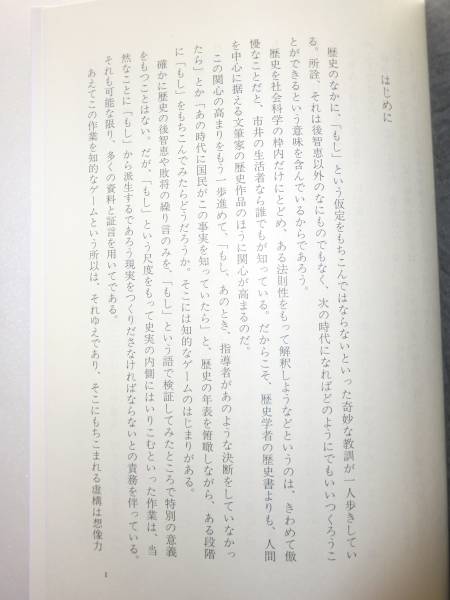 はじめに
歴史のなかに、「もし」という仮定をもちこんではならないといった奇妙な教訓が一人歩きしてい
る。所詮、それは後智恵以外のなにものでもなく、次の時代になればどのようにでもいいつくろうこ
とができるという意味を含んでいるからであろう。
歴史を社会科学の枠内だけにとどめ、ある法則性をもって解釈しようなどというのは、きわめて傲
慢なことだと、市井の生活者なら誰でもが知っている。だからこそ、歴史学者の歴史書よりも、人間
を中心に据える文筆家の歴史作品のほうに関心が高まるのだ。
この関心の高まりをもう一歩進めて、「もし、あのとき、指導者があのような決断をしていなかっ
たら」とか「あの時代に国民がこの事実を知っていたら」と、歴史の年表を俯瞰しながら、ある段階
に「もし」をもちこんでみたらどうだろうか。そこには知的なゲームのはじまりがある。
確かに歴史の後智恵や敗将の繰り言のみを、「もし」という語で検証してみたところで特別の意義
をもつことはない。だが、「もし」という尺度をもって史実の内側にはいりこむといった作業は、当
然なことに「もし」から派生するであろう現実をつくりださなければならないとの責務を伴っている。
それも可能な限り、多くの資料と証言を用いてである。
あえてこの作業を知的なゲームという所以は、それゆえであり、そこにもちこまれる虚構は想像力
1